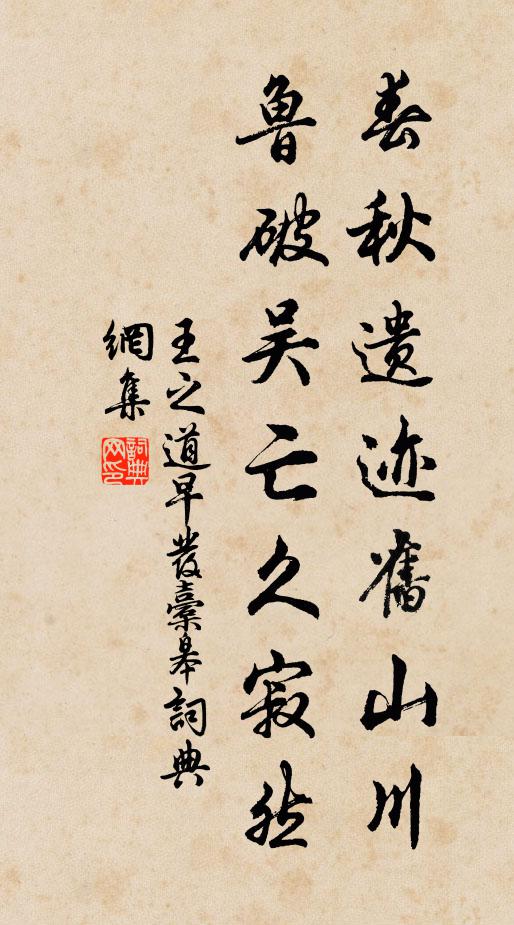 春秋遗迹舊山川
鲁破吴亡久寂然
王之道早發橐皋詞典
網集
詞典网印